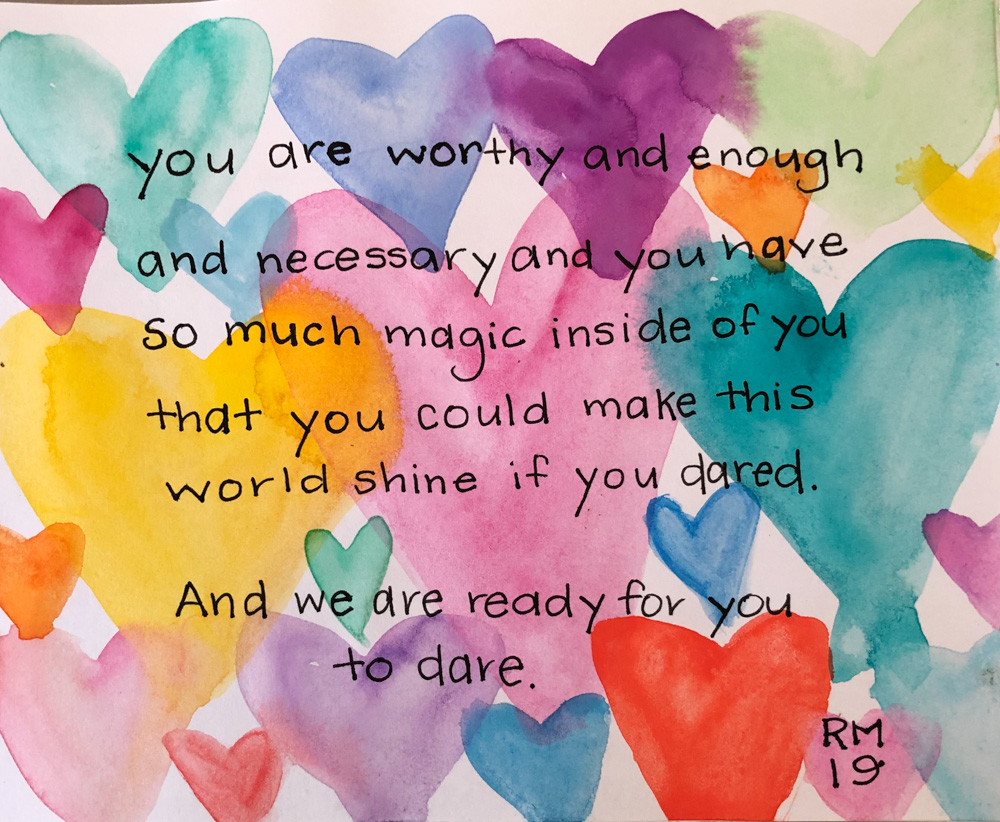 you are worthy and enough
and necessary and you have
so much magic inside of you
that you could make this
world shine if you dared.
And we are ready for you
to dare.
RM
19